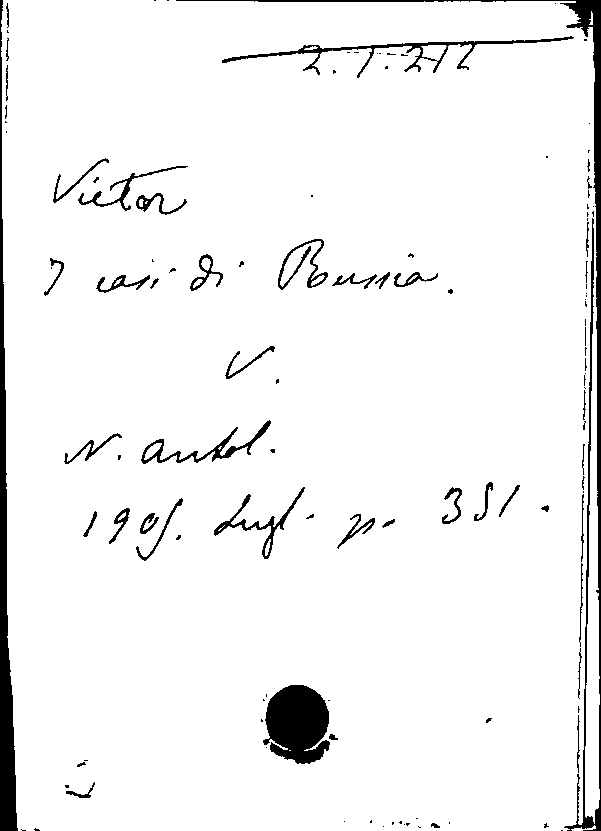 2.1.212
Victor
I casi di Russia.
V.
N. antol.
1905. Lugl. p. 351.